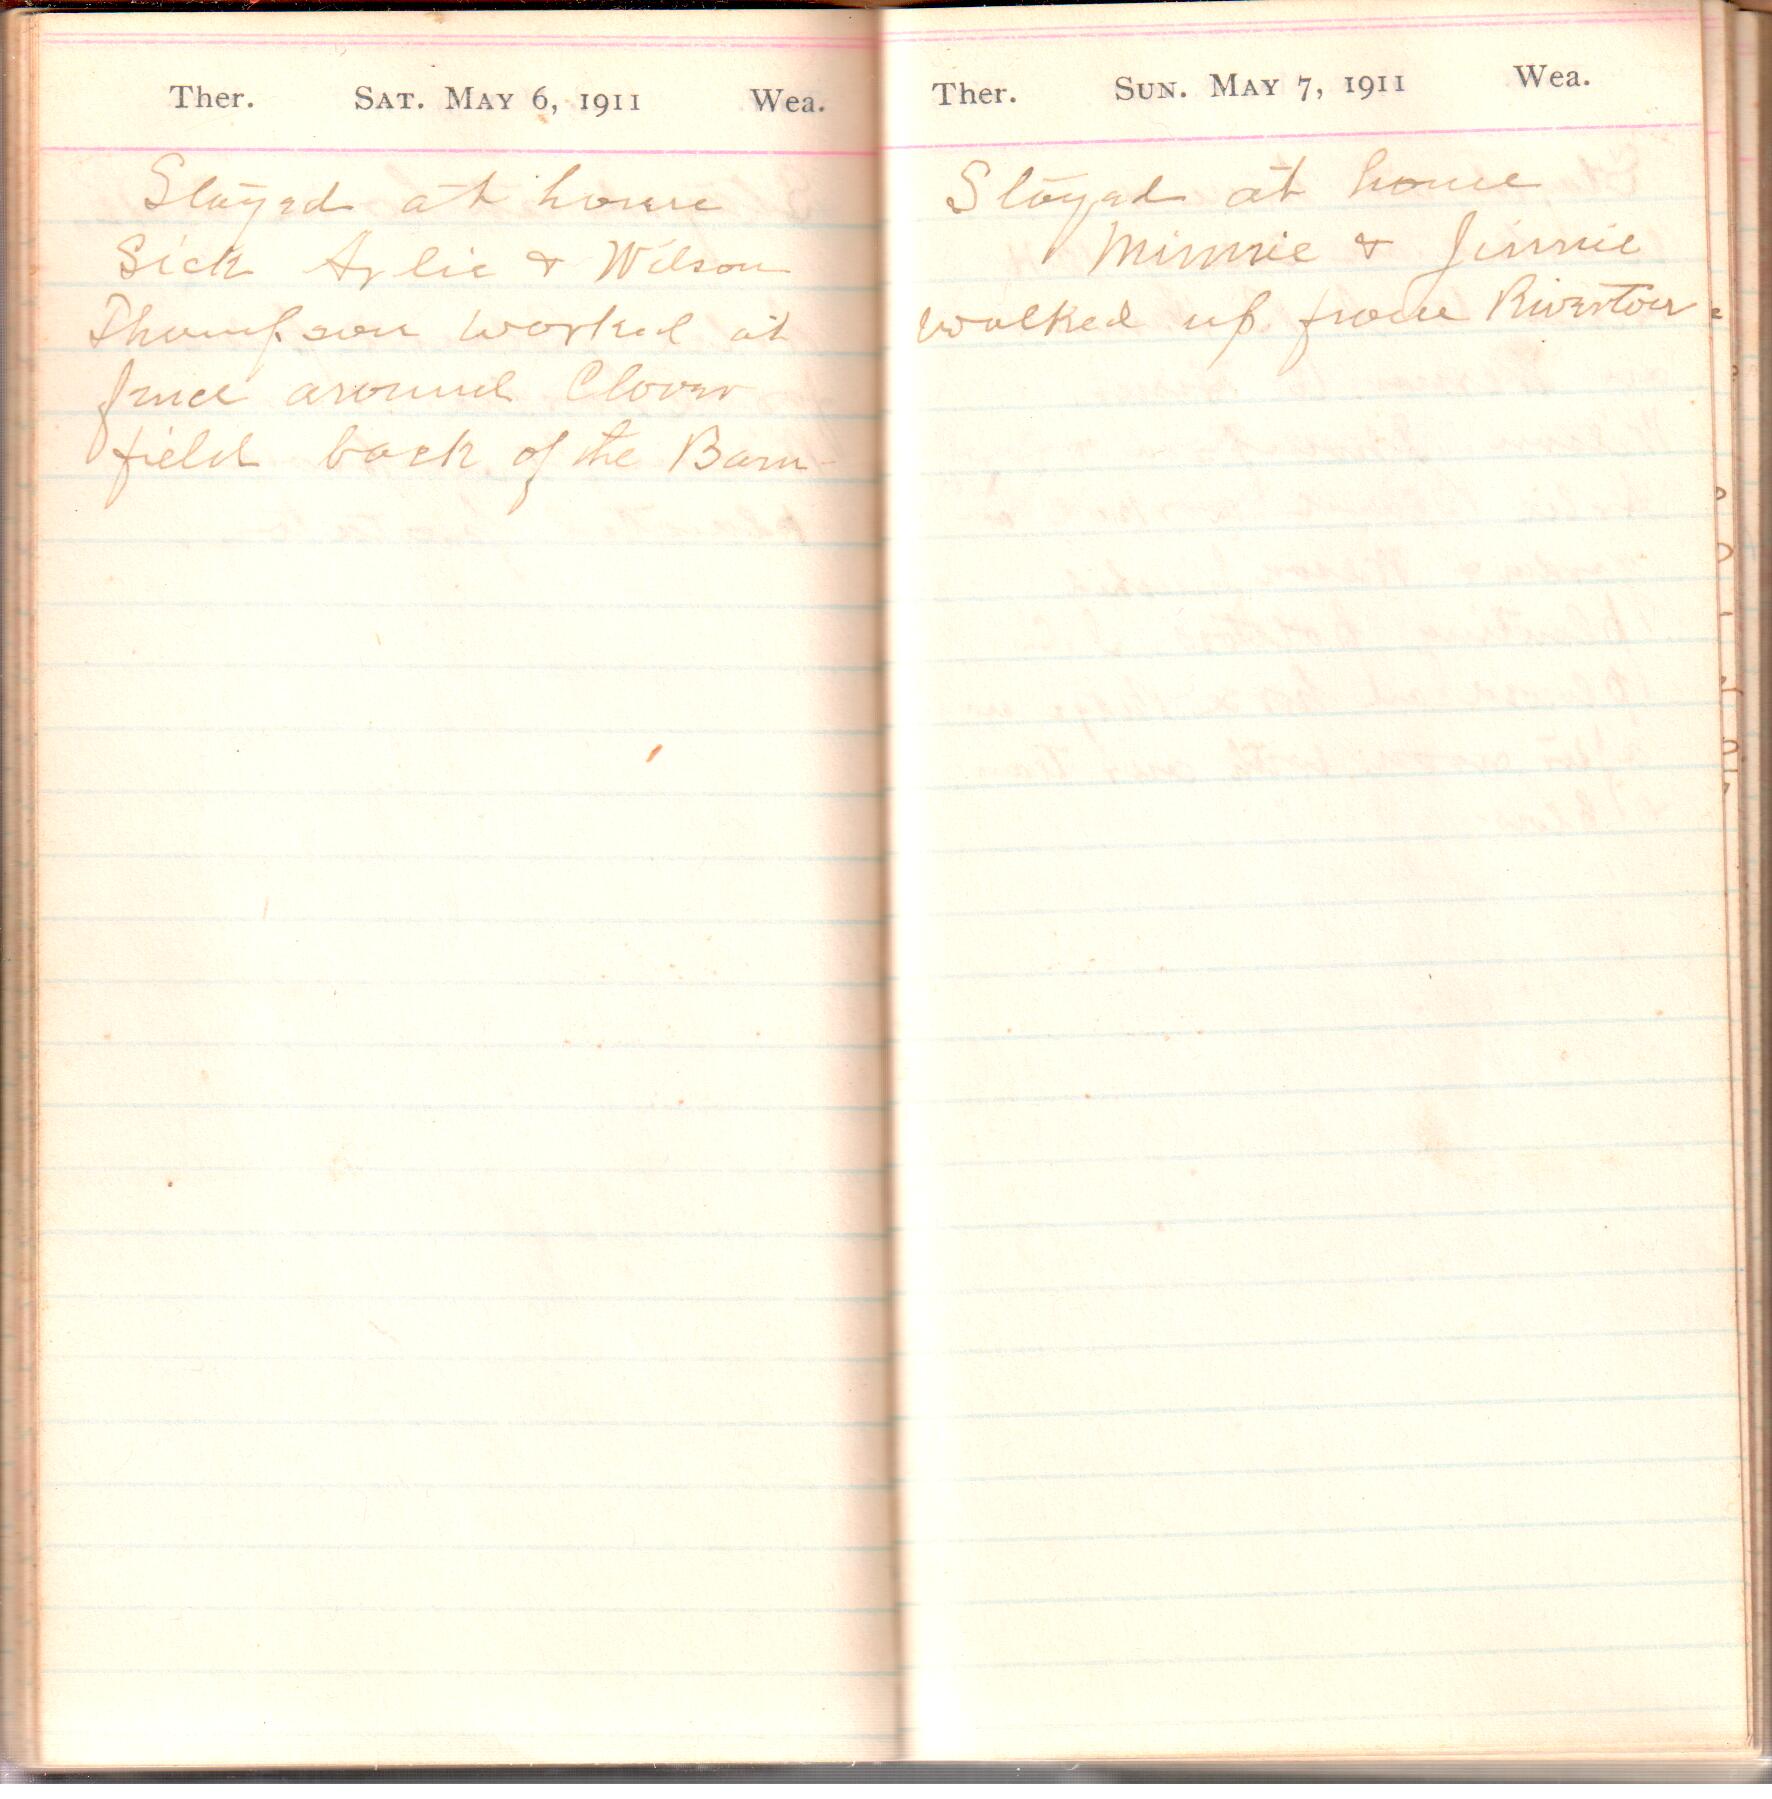 Ther. SAT. MAY 6, 1911 Wea.
Stayed at home
Sick Arlie & Wilson
Thompson worked at
fence around Clover
field back of the Barn
Ther. SUN. MAY 7, 1911 Wea.
Stayed at home
Minnie & Jinnie
walked up from Riverton